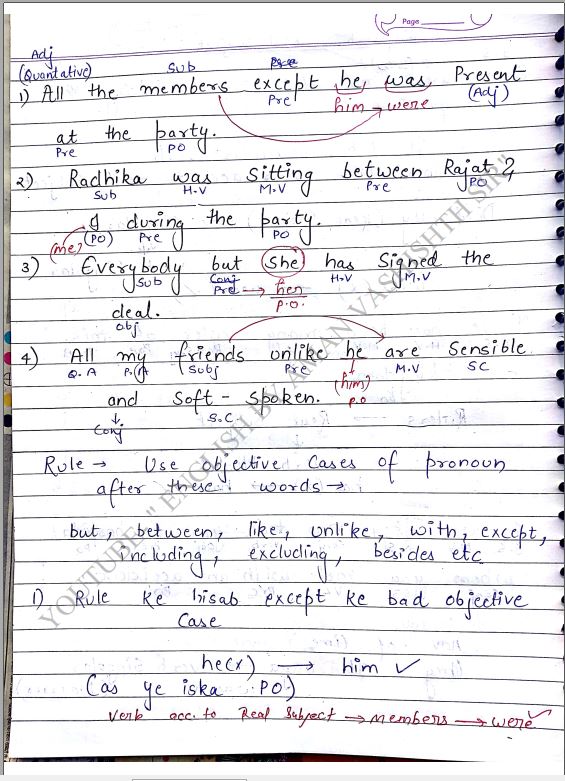 Page
Adj
(Quantative) Sub
1) All the members except he was Present
Pre him → were (Adj)
at the party.
Pre PO
2) Radhika was Sitting between Rajat &
Sub H.V M.V Pre PO
I during the party.
(me) (PO) Pre PO
3) Everybody but she has Signed the
Sub Conj Pre → her H.V M.V
P.O.
deal.
obj
4) All my friends unlike he are Sensible
Q.A P.A Subj Pre (him) M.V SC
P.O
and Soft-Spoken.
↓ S.C
Conj
Rule → Use objective Cases of pronoun
after these words →
but, between, like, unlike, with, except,
including, excluding, besides etc
1) Rule ke hisab except ke bad objective
Case
he(x) → him ✓
(as ye iska PO)
Verb acc. to Real Subject → members → were ✓
YOUTUBE "ENGLISH BY AMAN VASHISHTH SIR"